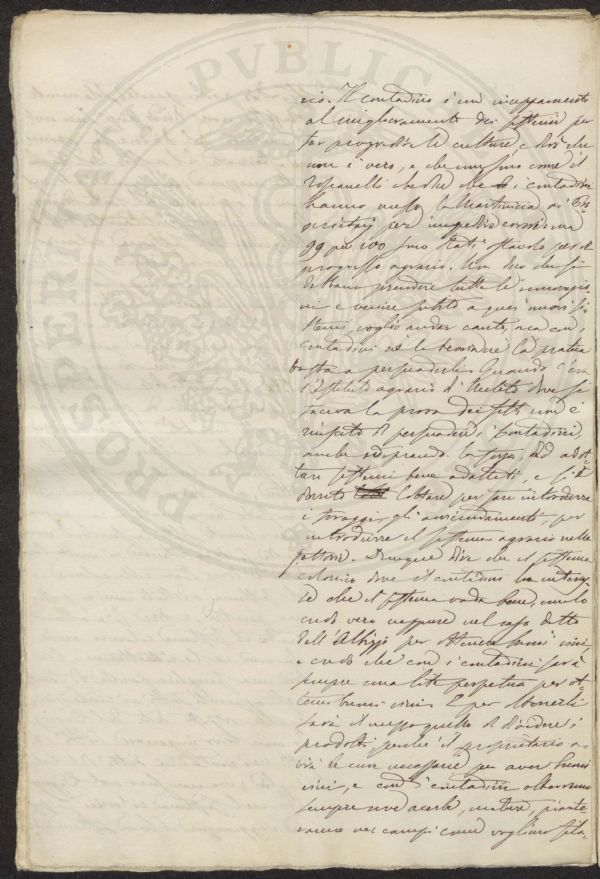 PROSPERITATI PVBLICAE
rio. Il contadino è un inceppamento
al miglioramento dei sistemi per
far progredire le culture e dirò che
non è vero, e che come il
che i contadini
hanno messo la ai Pro
prietari per
99 per 100 sono stati ostacolo per il
progresso agrario. Non dico che si
debbano prendere tutte le innovazio
ni e venire subito a quei nuovi si
stemi, voglio andar cauto, ma con i
contadini nè la ragione nè la pratica
basta a persuaderli. Quando c'era
l'Istituto agrario di Meleto dove si
faceva la prova dei fatti non è
riuscito di persuadere i Contadini,
anche adoprando la forza, ad adot
tare sistemi bene adattati, e si è
dovuto lottare per fare introdurre
i foraggi, gli avvicendamenti, per
introdurre il sistema agrario nelle
fattorie. Dunque dire che il sistema
colonico dove il contadino ha interes
se che il sistema vada bene, non lo
credo vero neppure nel caso detto
dall'Albizzi per ottenere buoni vini,
e credo che con i contadini sarà
sempre una lite perpetua per ot
tenere buoni vini. E per ottenerli
sarà il mezzo quello di dividere i
prodotti, perchè il proprietario a
vrà le cure necessarie per aver buoni
vini, e con i contadini otterremo
sempre uve acerbe, mature, piante
ranno nei campi come vogliono